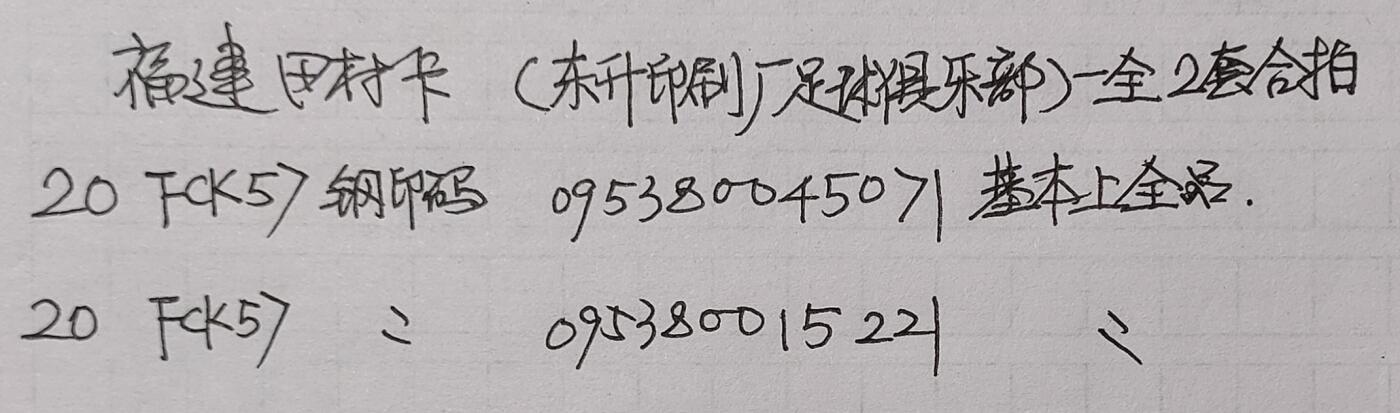 福建田村卡 (东升印刷厂足球俱乐部)一全2套合拍
20 FCK57 钢印码 095380045071 基本上全品.
20 FCK57 〃 095380015221 〃